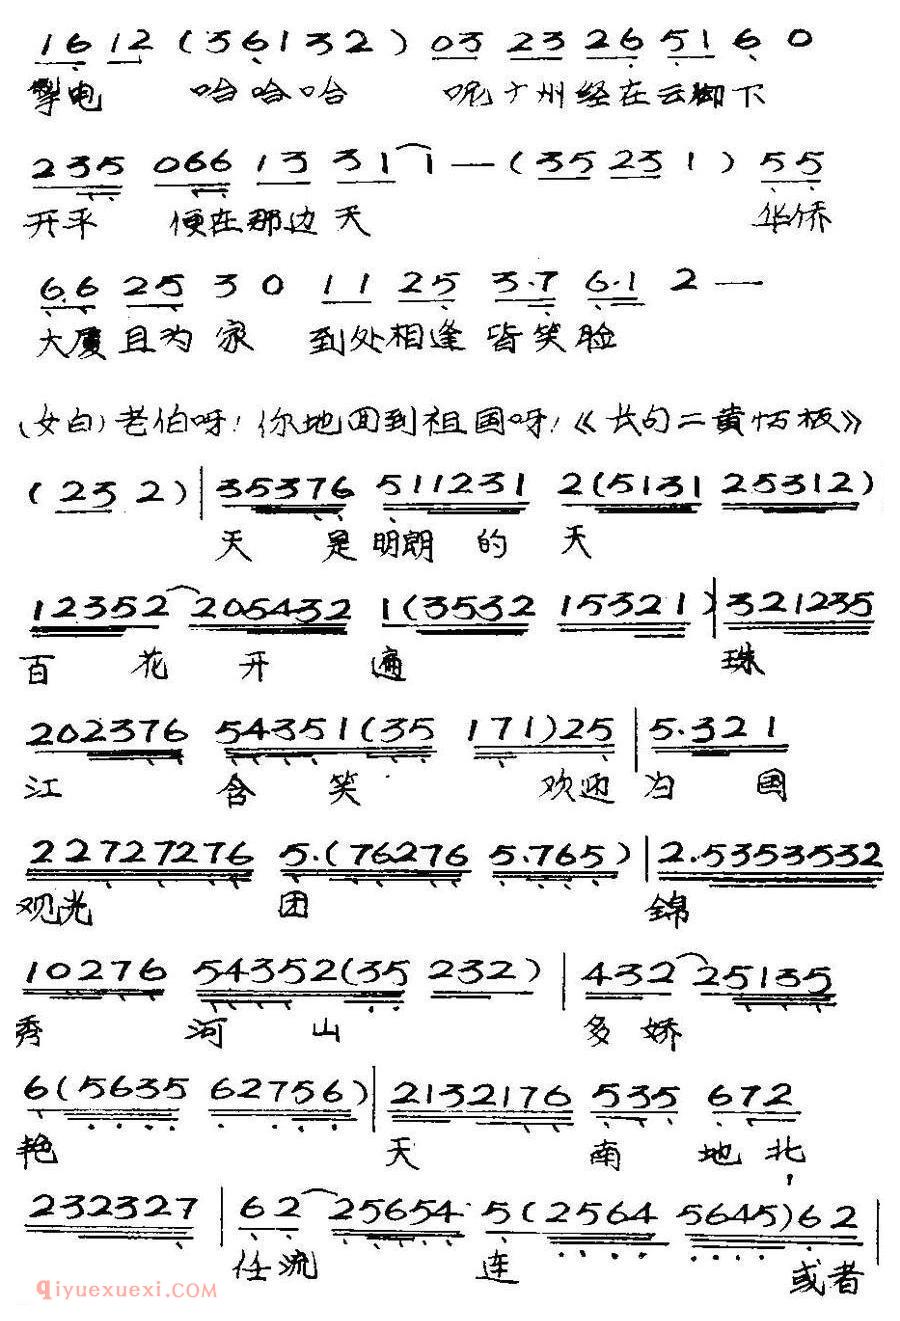 1 6 1 2 ( 3 6 1 3 2 ) 0 3 2 3 2 6 5 1 6 0
掣电 哈哈哈 呢广州经在云脚下
2 3 5 0 6 6 1 3 3 1 1 — ( 3 5 2 3 1 ) 5 5
开平 便在那边天 华侨
6 6 2 5 3 0 1 1 2 5 3 · 7 6 · 1 2 —
大厦且为家 到处相逢皆笑脸
(女白)老伯呀!你地回到祖国呀!《长句二黄忟板》
( 2 3 2 ) | 3 5 3 7 6 5 1 1 2 3 1 2 ( 5 1 3 1 2 5 3 1 2 )
天 是明朗的天
1 2 3 5 2 2 0 5 4 3 2 1 ( 3 5 3 2 1 5 3 2 1 ) | 3 2 1 2 3 5
百花开遍 珠
2 0 2 3 7 6 5 4 3 5 1 ( 3 5 1 7 1 ) 2 5 | 5 · 3 2 1
江 含笑 欢迎归国
2 2 7 2 7 2 7 6 5 · ( 7 6 2 7 6 5 · 7 6 5 ) | 2 · 5 3 5 3 5 3 2
观光 团 锦
1 0 2 7 6 5 4 3 5 2 ( 3 5 2 3 2 ) | 4 3 2 2 5 1 3 5
秀 河山 多娇
6 ( 5 6 3 5 6 2 7 5 6 ) | 2 1 3 2 1 7 6 5 3 5 6 7 2
艳 天 南 地北,
2 3 2 3 2 7 | 6 2 2 5 6 5 4 5 ( 2 5 6 4 5 6 4 5 ) 6 2 |
任流 连 或者
qiyuexuexi.com